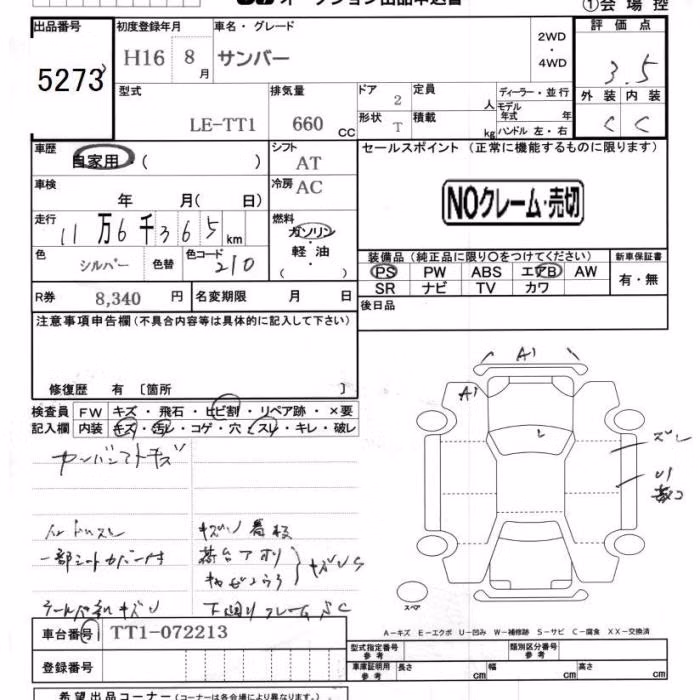 オークション出品申込書
①会場控
出品番号 初度登録年月 車名・グレード 2WD・4WD 評価点
5273 H16 8月 サンバー 3.5
型式 排気量 ドア 2 定員 人 ディーラー・並行 外装 内装
LE-TT1 660 CC 形状 T 積載 kg モデル年式 年 ハンドル 左・右 C C
車歴 自家用・( ) シフト AT セールスポイント (正常に機能するものに限ります)
車検 年 月( 日) 冷房 AC
NOクレーム・売切
走行 11万6千365km 燃料 ガソリン・軽油・( )
色 シルバー 色替 色コード 210
装備品 (純正品に限り○をつけてください) 新車保証書
PS PW ABS エアB AW 有・無
SR ナビ TV カワ
R券 8,340円 名変期限 月 日 後日品
注意事項申告欄 (不具合内容等は具体的に記入して下さい)
修復歴 有 〔箇所 〕
検査員記入欄 FW キズ・飛石・ヒビ割・リペア跡・×要
内装 キズ・汚レ・コゲ・穴・スレ・キレ・破レ
A1
A1
U1
一部シートカバー付
スペア
A-キズ E-エクボ U-凹み W-補修跡 S-サビ C-腐食 XX-交換済
車台番号 TT1-072213
型式指定番号 参考 類別区分番号 参考
登録番号
車庫証明用 参考 長さ cm 幅 cm 高さ cm
希望出品コーナー (コーナーは各会場により異なります)